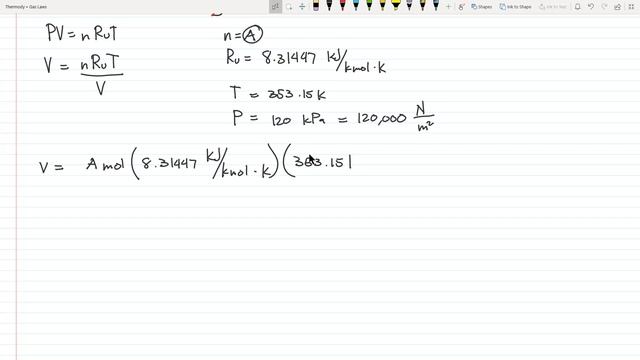 Thermody + Gas Laws
Shapes
Ink to Shape
Ink to Text
PV = n RuT
n = A
V = n RuT / V
Ru = 8.31447 KJ/kmol·K
T = 353.15K
P = 120 kPa = 120,000 N/m²
V = A mol (8.31447 KJ/kmol·K) (353.15